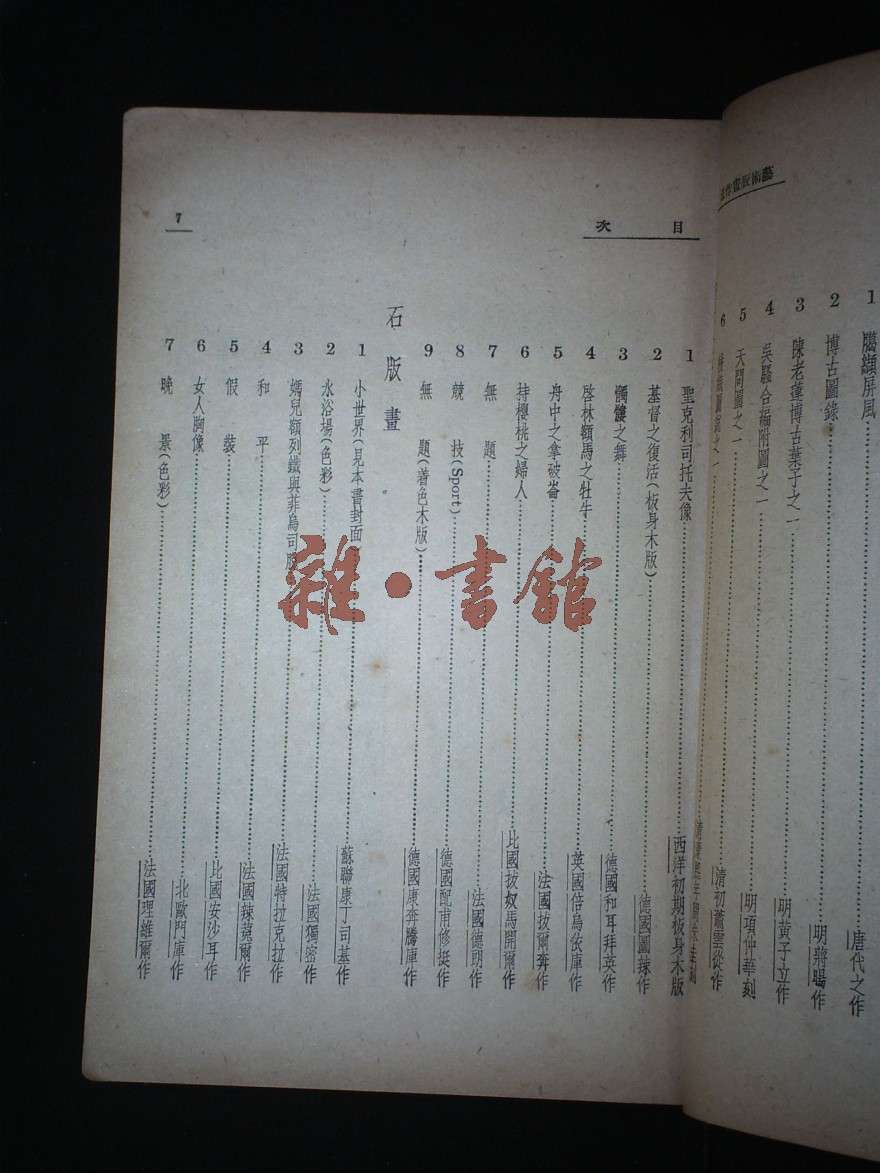 藝術版畫作
1 臈纈屏風 唐代之作
2 博古圖錄 明蔣暘作
3 陳老蓮博古葉子之一 明黃子立作
4 吳騷合編附圖之一 明項仲華刻
5 天問圖之一 清初蕭雲從作
6
目次
7
1 聖克利司托夫像 西洋初期板身木版
2 基督之復活(板身木版) 德國圖辣作
3 髑髏之舞 德國和耳拜英作
4 啓林額馬之牡牛 英國倍烏依庫作
5 舟中之拿破崙 法國拔爾奔作
6 持櫻桃之婦人 比國拔奴馬開爾作
7 無題 法國德朗作
8 競技(Sport) 德國配甫修挺作
9 無題(着色木版) 德國康奔騰庫作
石版畫
1 小世界(見本書封面 蘇聯康丁司基作
2 水浴場(色彩) 法國獨密作
3 媽兒額列鐵與菲烏司 法國特拉克拉作
4 和平 法國辣蒐爾作
5 假裝 比國安沙耳作
6 女人胸像 北歐門庫作
7 晚景(色彩) 法國理維爾作
雜·書館